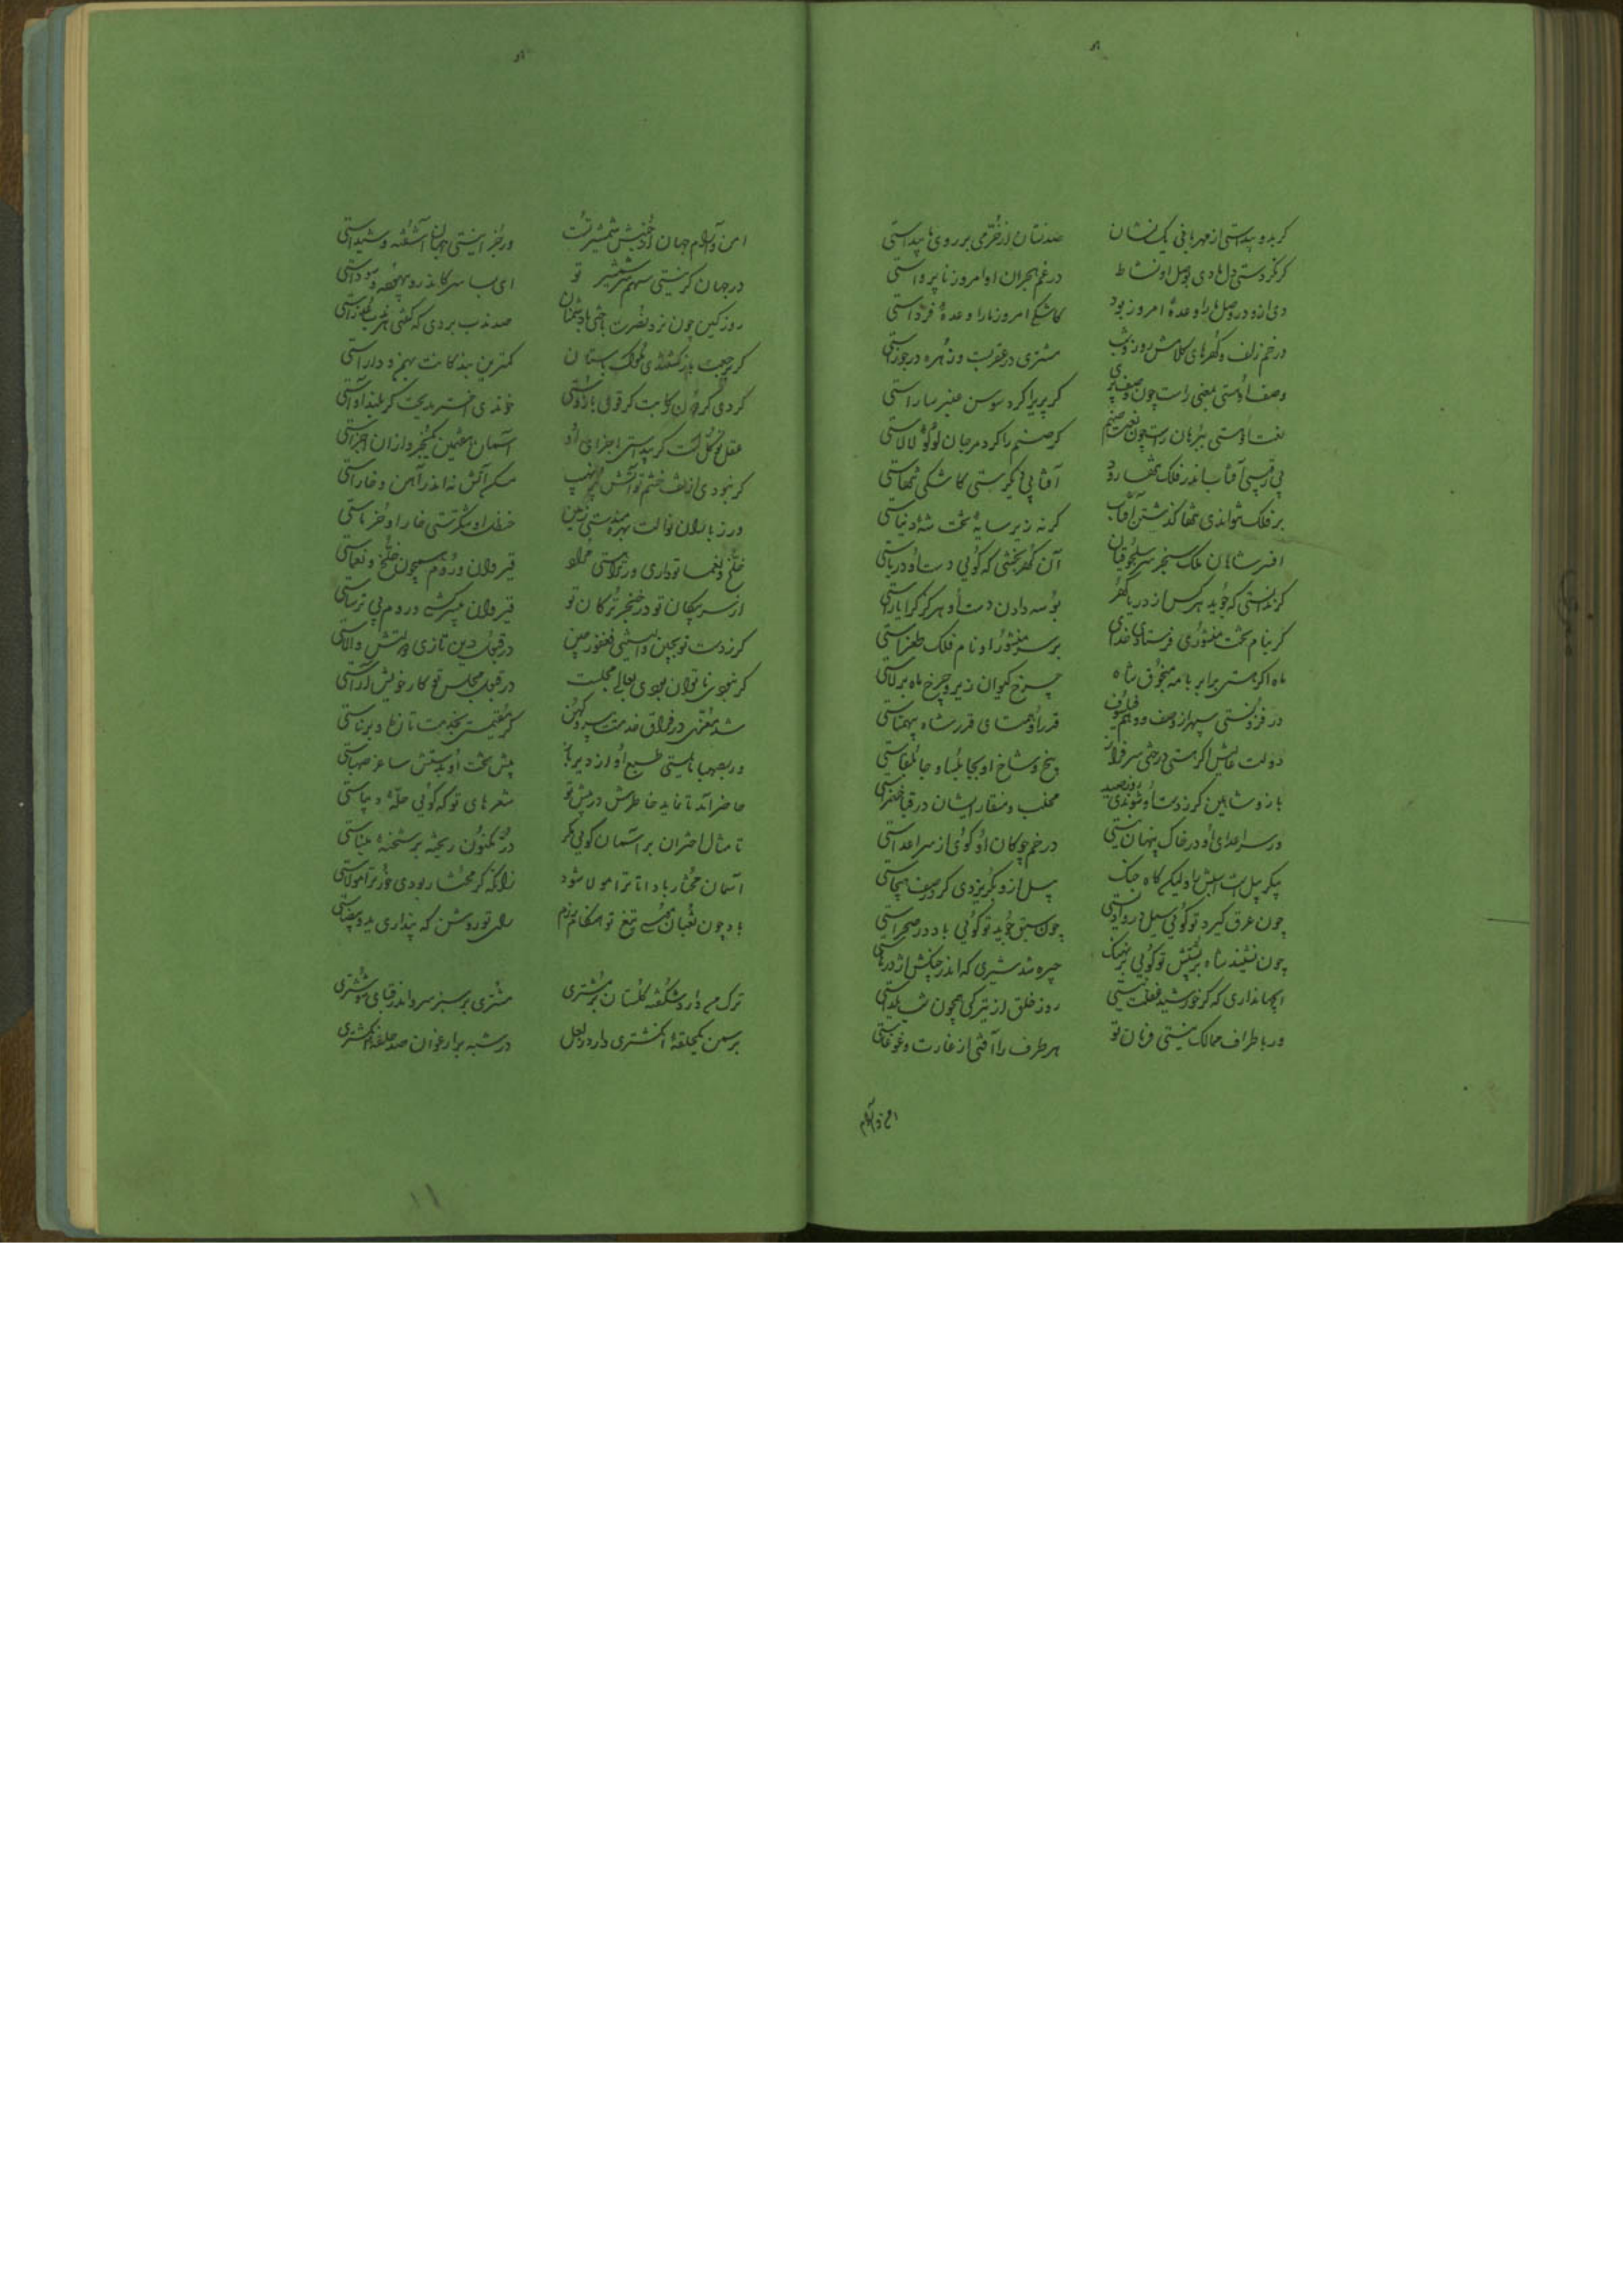 گر بدو پیداستی از مهربانی یک نشان صد نشان از خرمی بر روی ما پیداستی
گر نکردستی دل ما دی بوصل او نشاط در غم هجران او امروز ناپرواستی
دی ازو در وصل ما را وعدهٔ امروز بود کاشکی امروز ما را وعدهٔ فرداستی
در خم زلف و گهرهای کلاهش روز و شب مشتری در عقربست و زهره در جوزاستی
وصف او هستی بمعنی راست چون وصف پری گر پری را گرد سوسن عنبر ساراستی
نعت او هستی ببرهان راست چون نعت صنم گر صنم را گرد مرجان لؤلؤ لالاستی
بی رقیبی آفتاب اندر فلک تنها رود آفتابی نگرستی کاشکی تنهاستی
بر فلک نتواندی تنها گذشتن آفتاب گر نه زیر سایهٔ تخت شه دنیاستی
افسر شاهان ملک سنجر سلجوقیان آن گهربخشی که گوئی دست او دریاستی
گر ندانستی که جوید هر کس از دریا گهر بوسه دادن دست او هرگز کرا یاراستی
گر بنام بخت منشوری فرستادی خدای بر سر منشور او نام فلک طغراستی
ماه اگر هستی برابر با مه منجوق شاه چرخ کیوان زیر و چرخ ماه بر بالاستی
در فزونستی سپهر از وصف و وهم فیلسوف قدر او همتای قدر شاه بی همتاستی
دولت عالیش اگر هستی درختی سرفراز بیخ و شاخ او بجابلسا و جابلقاستی
باز و شاهین گر ز دست او شوندی روز صید مخلب و منقار ایشان در قفا عنقاستی
ور سر اعدای او در خاک پنهان نیستی در خم چوگان او گوی از سر اعداستی
پیکر پیل است اسبش را ولیکن گاه جنگ پیل ازو بگریزدی گر در صف هیجاستی
چون عرق گیرد تو گوئی سیل در وادیستی چون سبق جوید تو گوئی باد در صحراستی
چون نشیند شاه بر پشتش تو گوئی بر نهنگ چیره شد شیری که اندر چنگش اژدرهاستی
ای جهانداری که گر خورشید فعلت نیستی روز خلق از تیرگی همچون شب یلداستی
ور باطراف ممالک نیستی فرمان تو هر طرف را آفتی از غارت و غوغاستی
امن و آرام
امن و آرام جهان از جنبش شمشیر تست ور جز اینستی جهان آشفته و شیداستی
در جهان گر نیستی سهم سر شمشیر تو ای بسا سر کاندرو بیهوده سوداستی
روز کین چون نرد نصرت باختی با دشمنان صد ندب بردی که گفتی هر ندب عذراستی
گر برجعت باز گشتندی ملوک باستان کمترین بندگانت بهمن و داراستی
خواندی اختر مدیحت گر بلند آواستی
عقل تو کل است گر پیداستی اجزای او آسمان هفتمین کمتر جزو از آن اجزاستی
گر نبودی از تف خشم تو آتش را نهیب مسکن آتش نه اندر آهن و خاراستی
ور ز باران نوالت بهره مندستی زمین حنظل او نیشکرستی خار او خرماستی
خلخ و یغما تو داری ور نخواهستی مراد قیروان و روم همچون خلخ و یغماستی
از سر پیکان تو در خنجر ترکان تو قیروان بی سرکش و روم بی ترساستی
گر ز دست تو بچین والیستی فغفور چین در قبول دین تازی والیش والاستی
گر نبودی ناتوان بودی بعالی مجلست در قبول مجلس تو کار خویش آراستی
شد معزی در فراق خدمتت پیر و کهن گر مقیمستی بخدمت تازه و برناستی
ور بصهبا مایلستی طبع او از دیرباز پیش تخت او بدستش ساغر صهباستی
حاضر آمد تا نماید خاطرش در پیش تو شعرهای تو که گوئی حلهٔ دیباستی
تا مثال اختران بر آسمان گوئی مگر در مکنون ریخته بر تختهٔ میناستی
آسمان مختار باد تا ترا مولا شود زانکه گر مختار بودی خود ترا مولاستی
باد چون ثعبان موسی تیغ تو هنگام رزم رای تو روشن که پنداری ید بیضاستی
ترک مه دارد شکفته گلستان بر مشتری مشتری بر سبز سرو اندر قبای ششتری
بر سمن یک حلقهٔ انگشتری دارد ز لعل در شبه بر ارغوان صد حلقهٔ انگشتری
۱۱